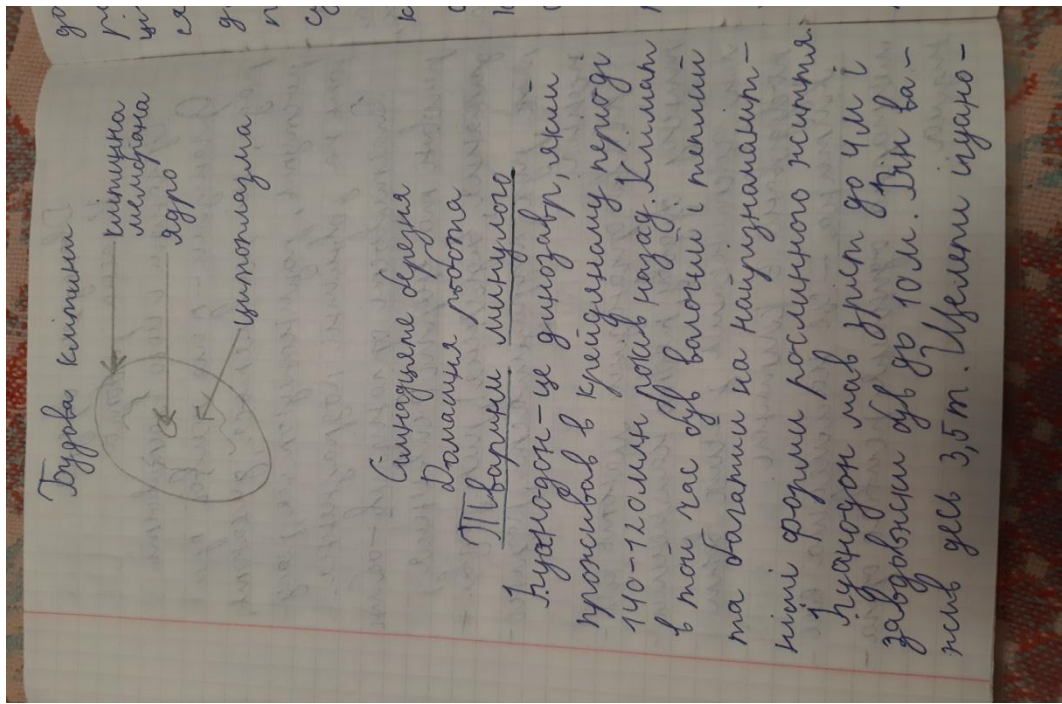 Будова клітини
клітинна
мембрана
ядро
цитоплазма
Сімнадцяте березня
Домашня робота
Тварини минулого
Ігуанодон - це динозавр, який
проживав в крейдяному періоді
140-120млн років назад. Клімат
в той час був вологий і теплий
та багатий на найрізноманіт-
ніші форми рослинного життя.
Ігуанодон мав зріст до 4м і
завдовжки був до 10м. Він ва-
жив десь 3,5т. Щелепи ігуано-